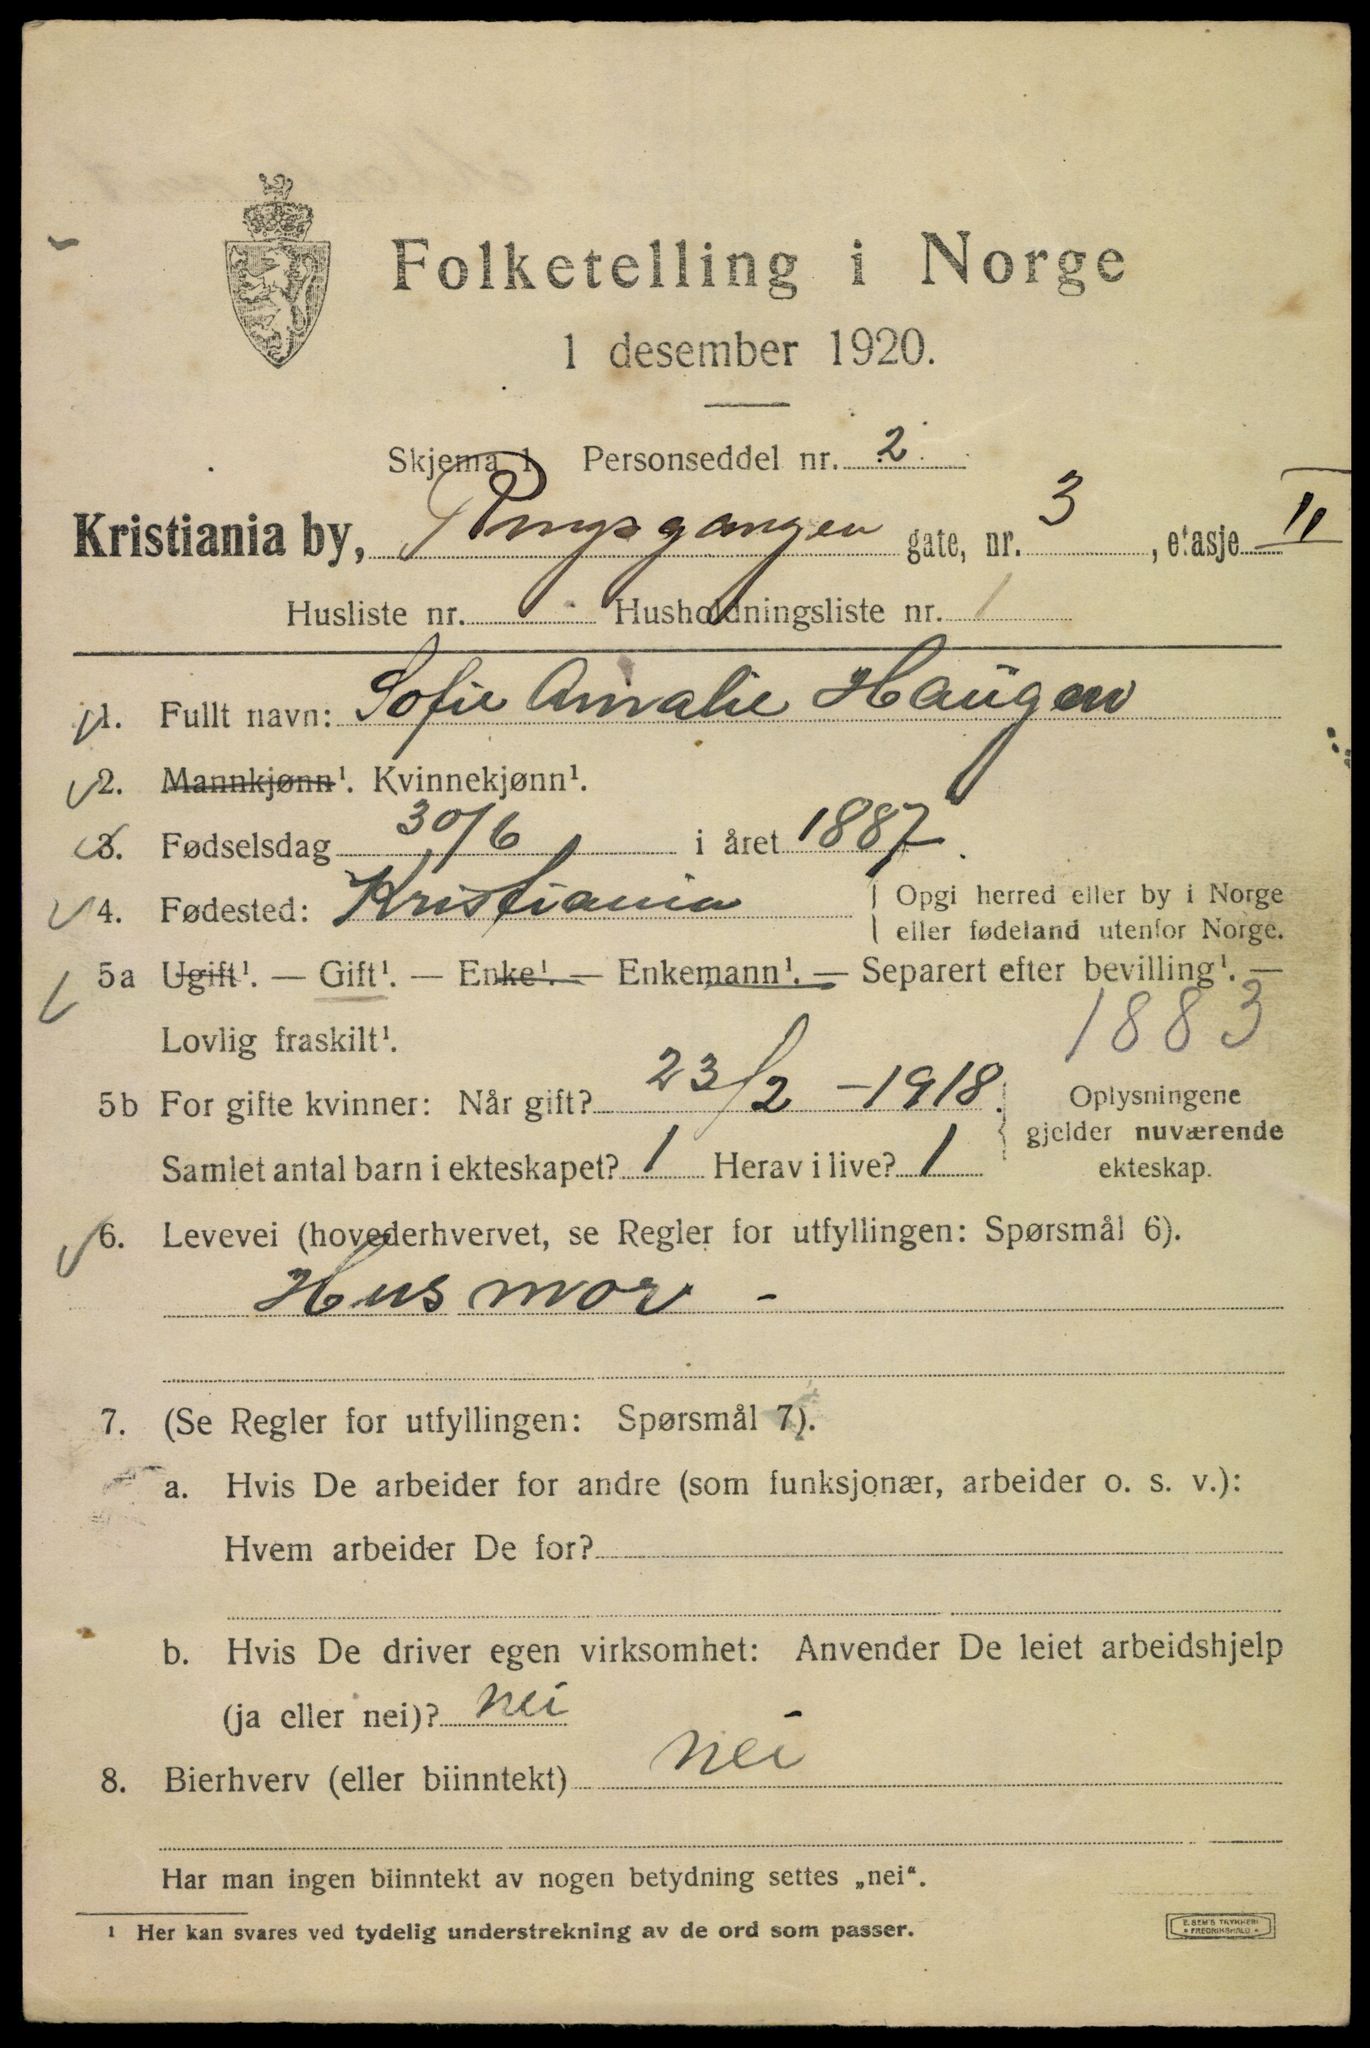 Folketelling i Norge
1 desember 1920.
Skjema 1. Personseddel nr. 2
Kristiania by, gate, nr. 3, etasje II
Husliste nr. Husholdningsliste nr. 1
1. Fullt navn: Sofie Amalie Haugen
2. Mannkjønn¹. Kvinnekjønn¹.
3. Fødselsdag 30/6 i året 1887.
4. Fødested: Kristiania Opgi herred eller by i Norge
eller fødeland utenfor Norge.
5a Ugift¹. — Gift¹. — Enke¹. — Enkemann¹. — Separert efter bevilling¹. —
Lovlig fraskilt¹. 1883
5b For gifte kvinner: Når gift? 23/2 - 1918. Oplysningene
gjelder nuværende
Samlet antal barn i ekteskapet? 1 Herav i live? 1 ekteskap.
6. Levevei (hovederhvervet, se Regler for utfyllingen: Spørsmål 6).
Husmor -
7. (Se Regler for utfyllingen: Spørsmål 7).
a. Hvis De arbeider for andre (som funksjonær, arbeider o. s. v.):
Hvem arbeider De for?
b. Hvis De driver egen virksomhet: Anvender De leiet arbeidshjelp
(ja eller nei)? nei
8. Bierhverv (eller biinntekt) nei
Har man ingen biinntekt av nogen betydning settes „nei“.
¹ Her kan svares ved tydelig understrekning av de ord som passer.
E. SEM'S TRYKKERI
FREDRIKSHALD